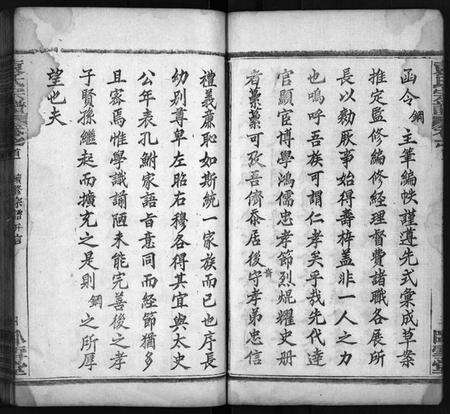 函令 鋼 主筆編帙謹遵先式彙成草案
推定監修編修經理督費諸職各展所
長以勷厥事始得壽梓蓋非一人之力
也嗚呼吾族可謂仁孝矣乎哉先代達
官顯宦博學鴻儒忠孝節烈焜耀史册
者藁藁可攷吾儕忝居後守孝弟忠信
禮義廉恥如斯統一家族而已也序長
幼別尊卑左昭右穆各得其宜與太史
公年表孔鮒家語旨意同而經節猶多
且畧焉惟學識譾陋未能完善後之孝
子賢孫繼起而擴充之是則 鋼 之所厚
望也夫